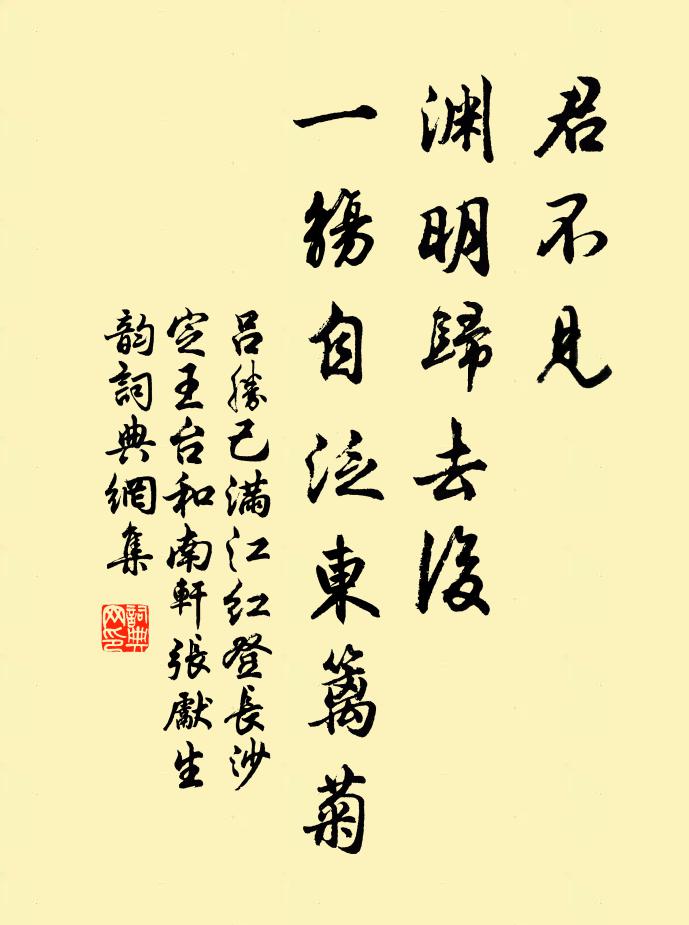 君不見
渊明歸去後
一觴自泛東籬菊
吕勝己满江红登長沙
定王台和南軒張獻生
韵詞典網集
詞典
网印